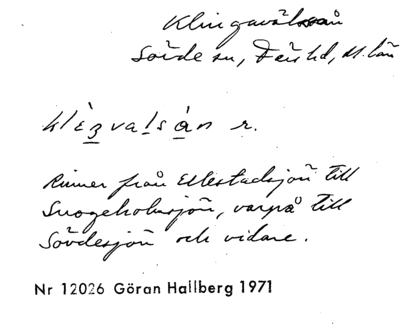 Klingavälsån
Sövde sn, Färs hd, M. län
klèȝvalsån r.
Rinner från Ellestadsjön till
Snogeholmsjön, varpå till
Sövdesjön och vidare.
Nr 12026 Göran Hallberg 1971